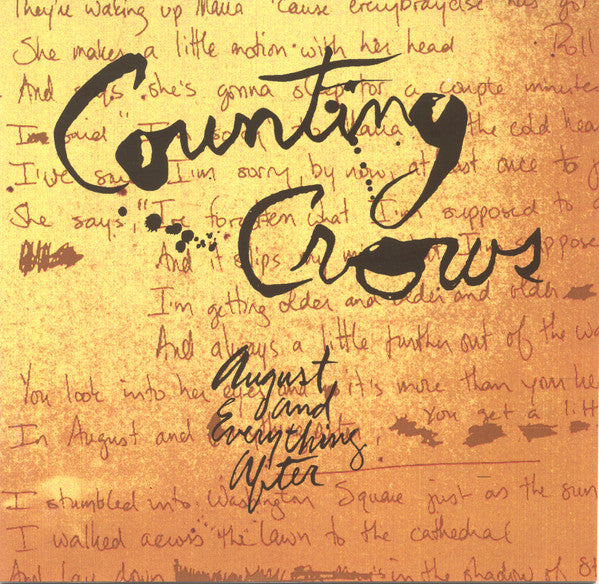 They're waking up Maria 'cause everybody else has got
She makes a little motion with her head
Roll
And says she's gonna sleep for a couple minutes
I said "I'm sorry" to Maria the cold hea
I've said I'm sorry by now, at least once to j
She says, "I've forgotten what I'm supposed to
And it slips my mind I suppose
I'm getting older and older and older
And always a little further out of the wa
You look into her eyes and it's more than your he
In August and You get a litt
I stumbled into Washington Square just as the sun
I walked across the lawn to the cathedral
And lay down in the shadow of
Counting
Crows
August
and
Everything
After